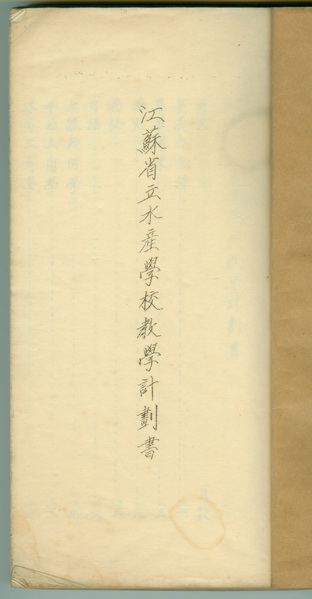 江蘇省立水產學校教學計劃書